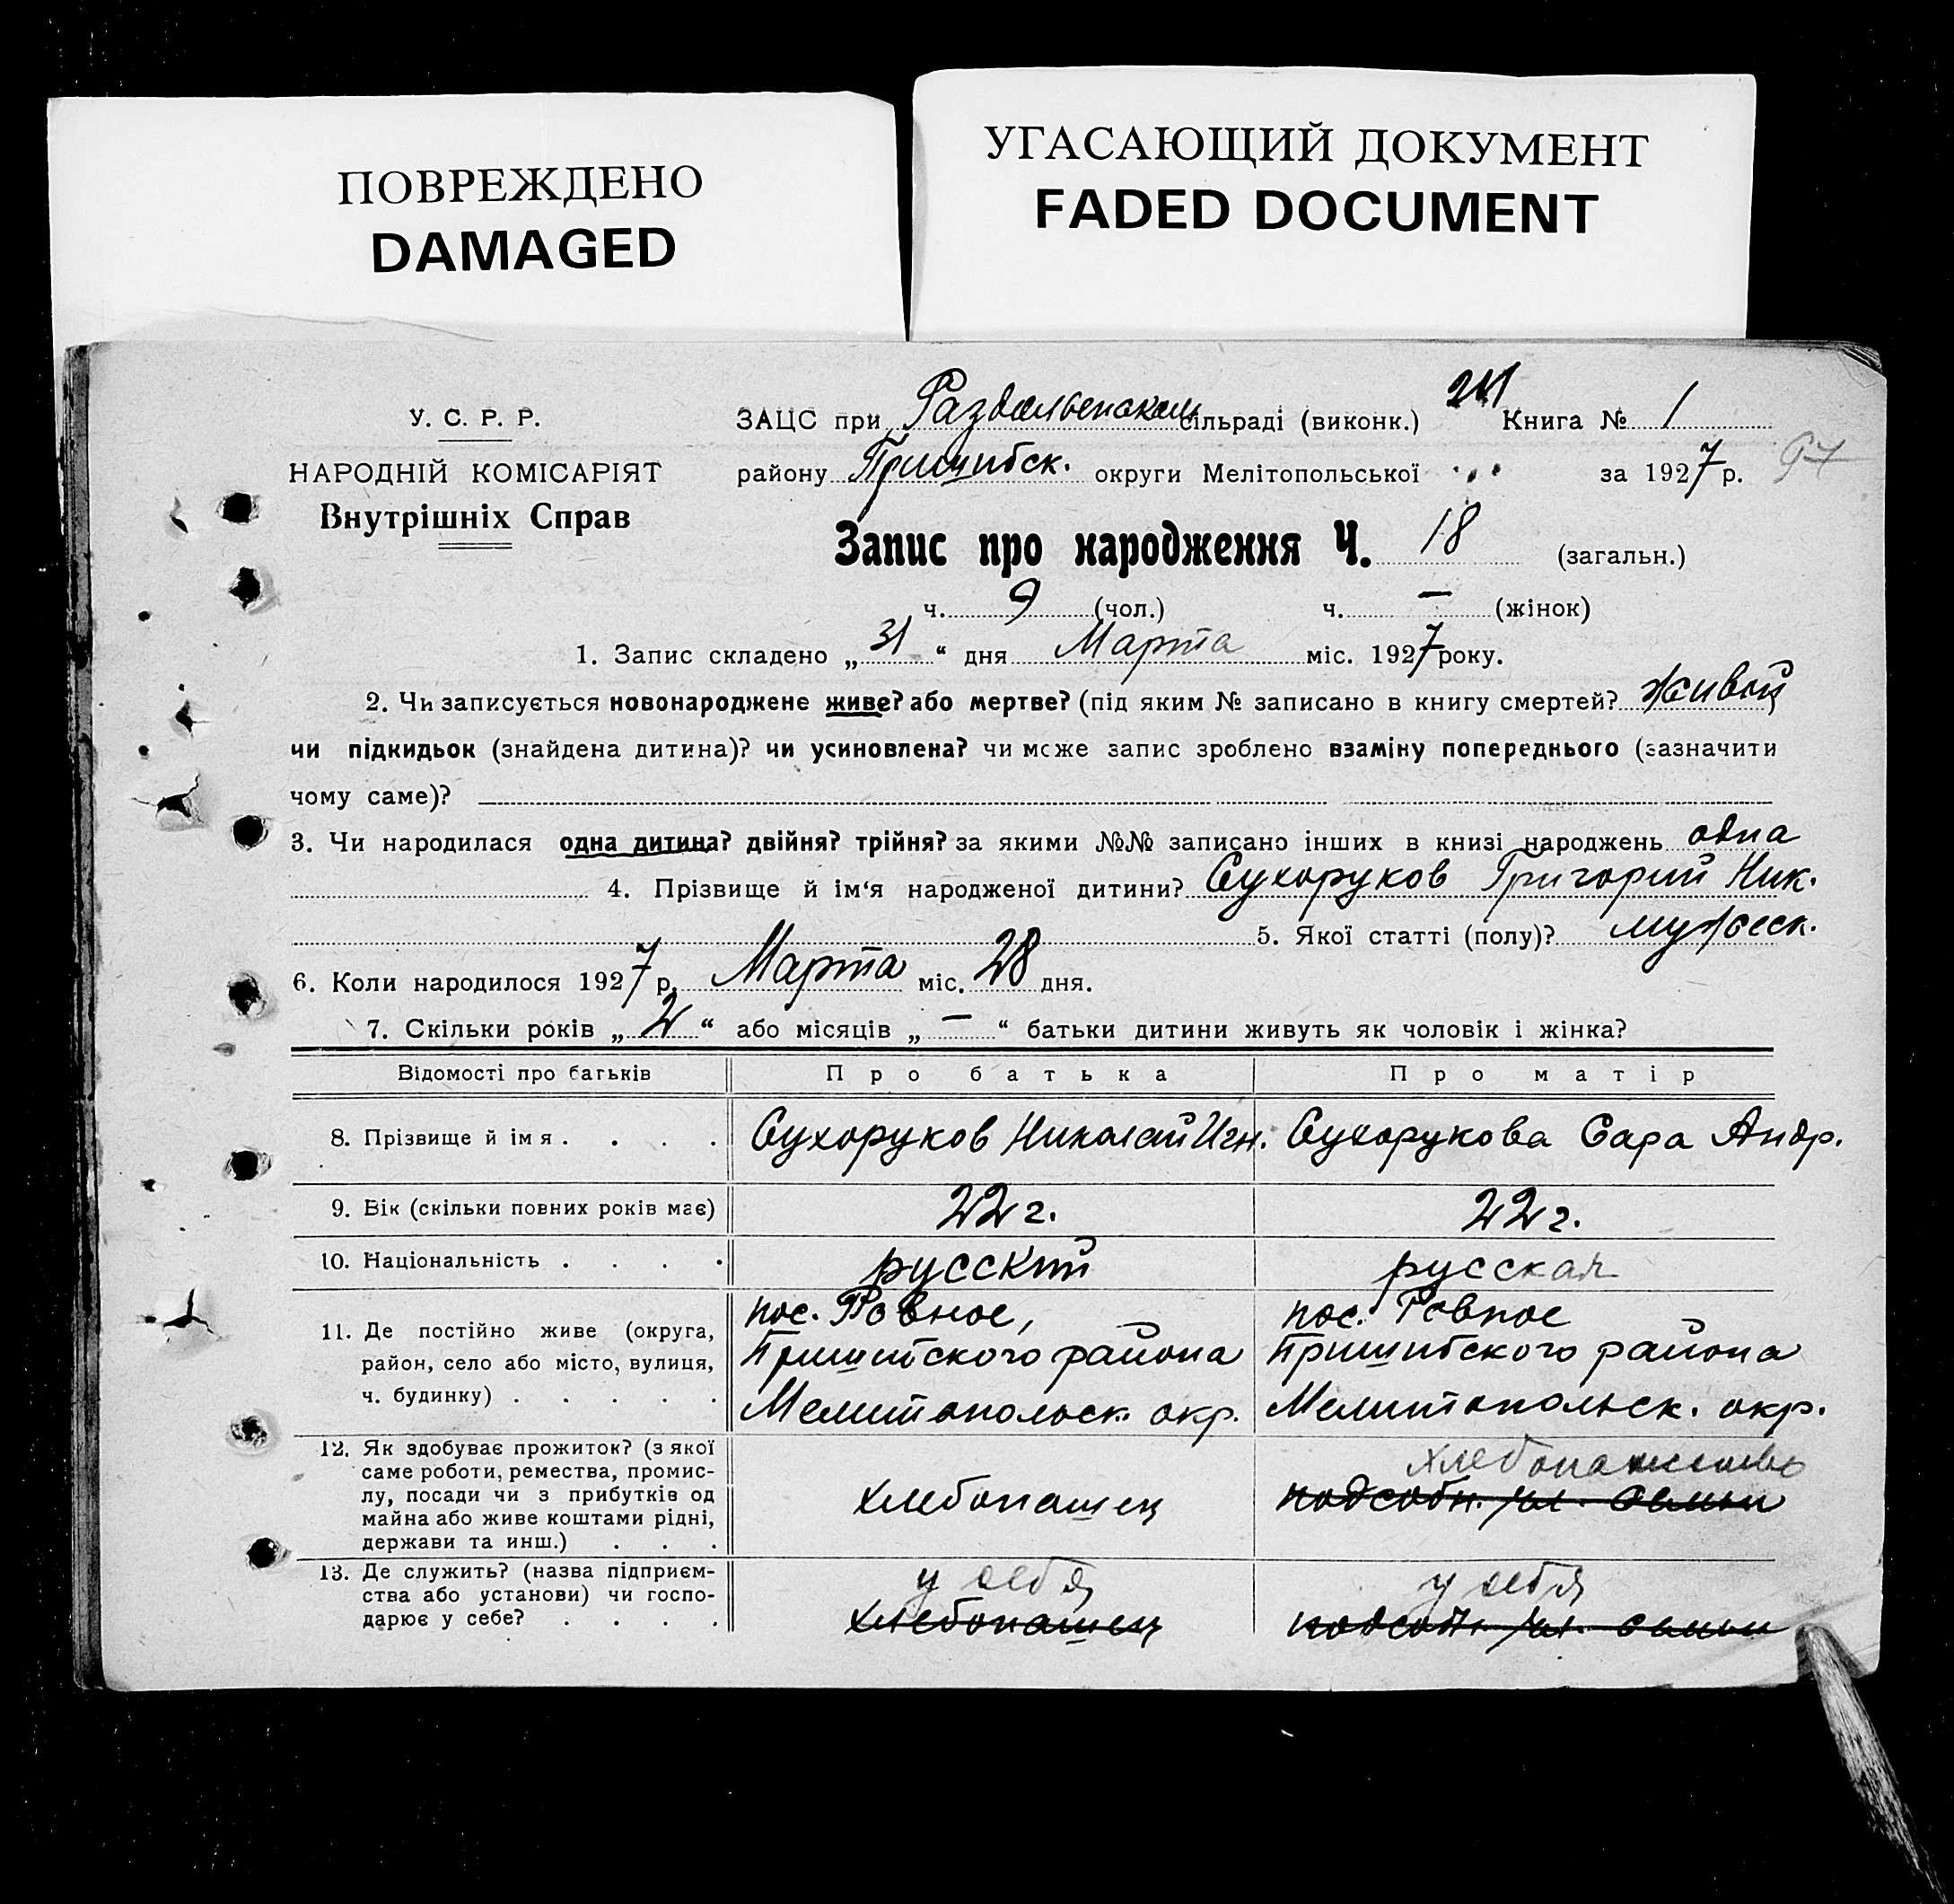 ПОВРЕЖДЕНО
DAMAGED
УГАСАЮЩИЙ ДОКУМЕНТ
FADED DOCUMENT
У. С. Р. Р.
НАРОДНІЙ КОМІСАРІЯТ
Внутрішніх Справ
ЗАЦС при Раздольенском сільраді (виконк.) Книга № 1
району Пришибск. округи Мелітопольської за 1927 р. 97
Запис про народження Ч. 18 (загальн.)
ч. 9 (чол.) ч. — (жінок)
1. Запис складено „ 31 “ дня Марта міс. 1927 року.
2. Чи записується новонароджене живе? або мертве? (під яким № записано в книгу смертей? живой
чи підкидьок (знайдена дитина)? чи усиновлена? чи може запис зроблено взаміну попереднього (зазначити
чому саме)?
3. Чи народилася одна дитина? двійня? трійня? за якими №№ записано інших в книзі народжень одна
4. Прізвище й ім‘я народженої дитини? Сухоруков Григорий Ник.
5. Якої статті (полу)? мужеск.
6. Коли народилося 1927 р. Марта міс. 28 дня.
7. Скільки років „ 2 “ або місяців „ — “ батьки дитини живуть як чоловік і жінка?
Відомості про батьків Про батька Про матір
8. Прізвище й імя . . . . Сухоруков Николай Игн. Сухорукова Сара Андр.
9. Вік (скільки повних років має) 22 г. 22 г.
10. Національність . . . . русский русская
11. Де постійно живе (округа, район, село або місто, вулиця, ч. будинку) . . . . .
пос. Ровное,
Пришибского района
Мелитопольск. окр.
пос. Ровное
Пришибского района
Мелитопольск. окр.
12. Як здобуває прожиток? (з якої
саме роботи, ремества, промис-
лу, посади чи з прибутків од
майна або живе коштами рідні,
держави та инш.) . . .
хлебопашец
хлебопашество
подсобн. чл. семьи
13. Де служить? (назва підприєм-
ства або установи) чи госпо-
дарює у себе? . . . .
у себя
хлебопашец
у себя
подсобн. чл. семьи